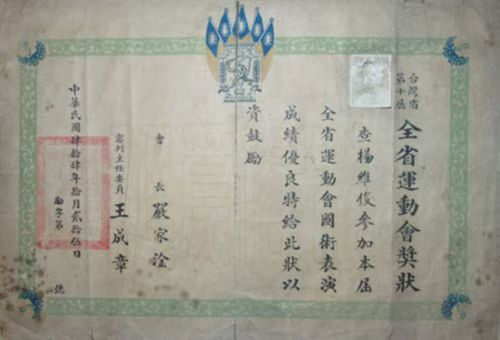 台灣省
第十屆
全省運動會獎狀
查楊維俊參加本屆
全省運動會國術表演
成績優良特給此狀以
資鼓勵
會長 嚴家淦
審判主任委員 王成章
中華民國肆拾肆年拾月貳拾伍日
字第 號